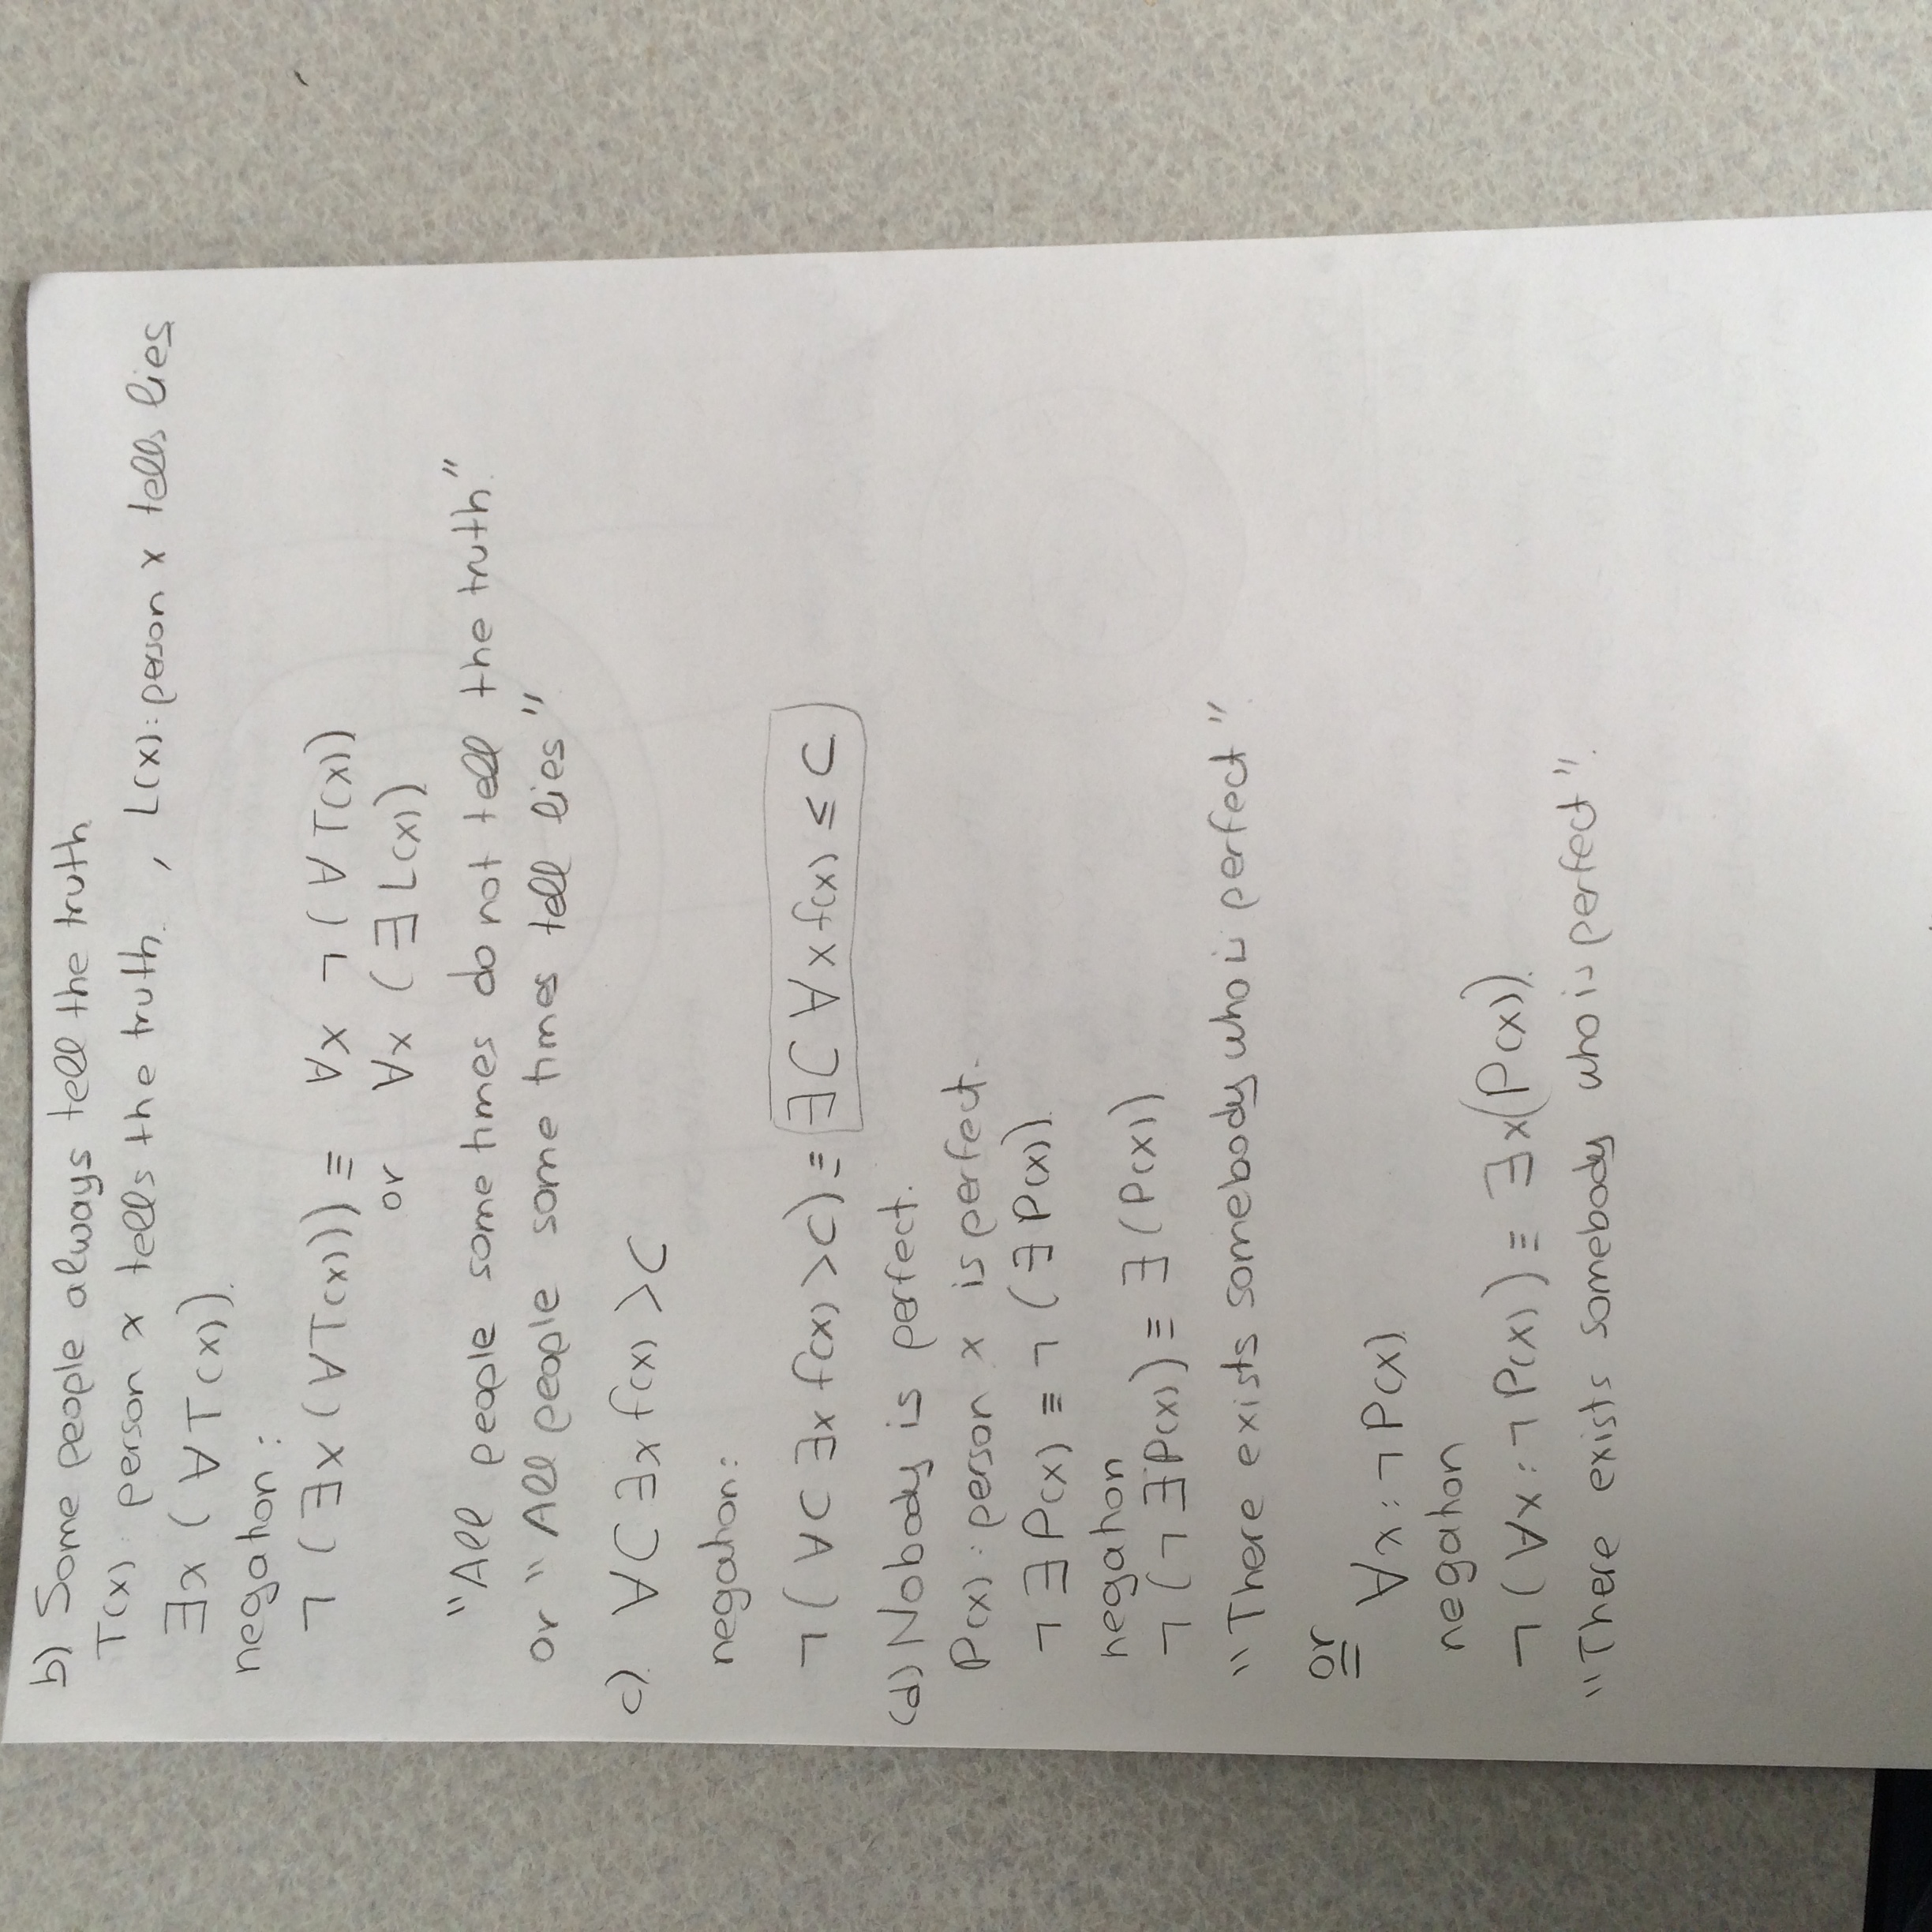 b) Some people always tell the truth.
T(x): person x tells the truth. , L(x): person x tells lies
∃x (∀T(x)).
negation:
¬ (∃x (∀T(x))) ≡ ∀x ¬(∀T(x))
or ∀x (∃L(x))
"All people some times do not tell the truth."
or "All people some times tell lies"
c). ∀C ∃x f(x) > C
negation:
¬(∀C ∃x f(x) > C) ≡ ∃C ∀x f(x) ≤ C
(d) Nobody is perfect.
P(x): person x is perfect.
¬∃P(x) ≡ ¬(∃P(x)).
negation
¬(¬∃P(x)) ≡ ∃(P(x))
"There exists somebody who is perfect".
or
∀x: ¬P(x).
negation
¬(∀x: ¬P(x)) ≡ ∃x(P(x)).
"There exists somebody who is perfect".